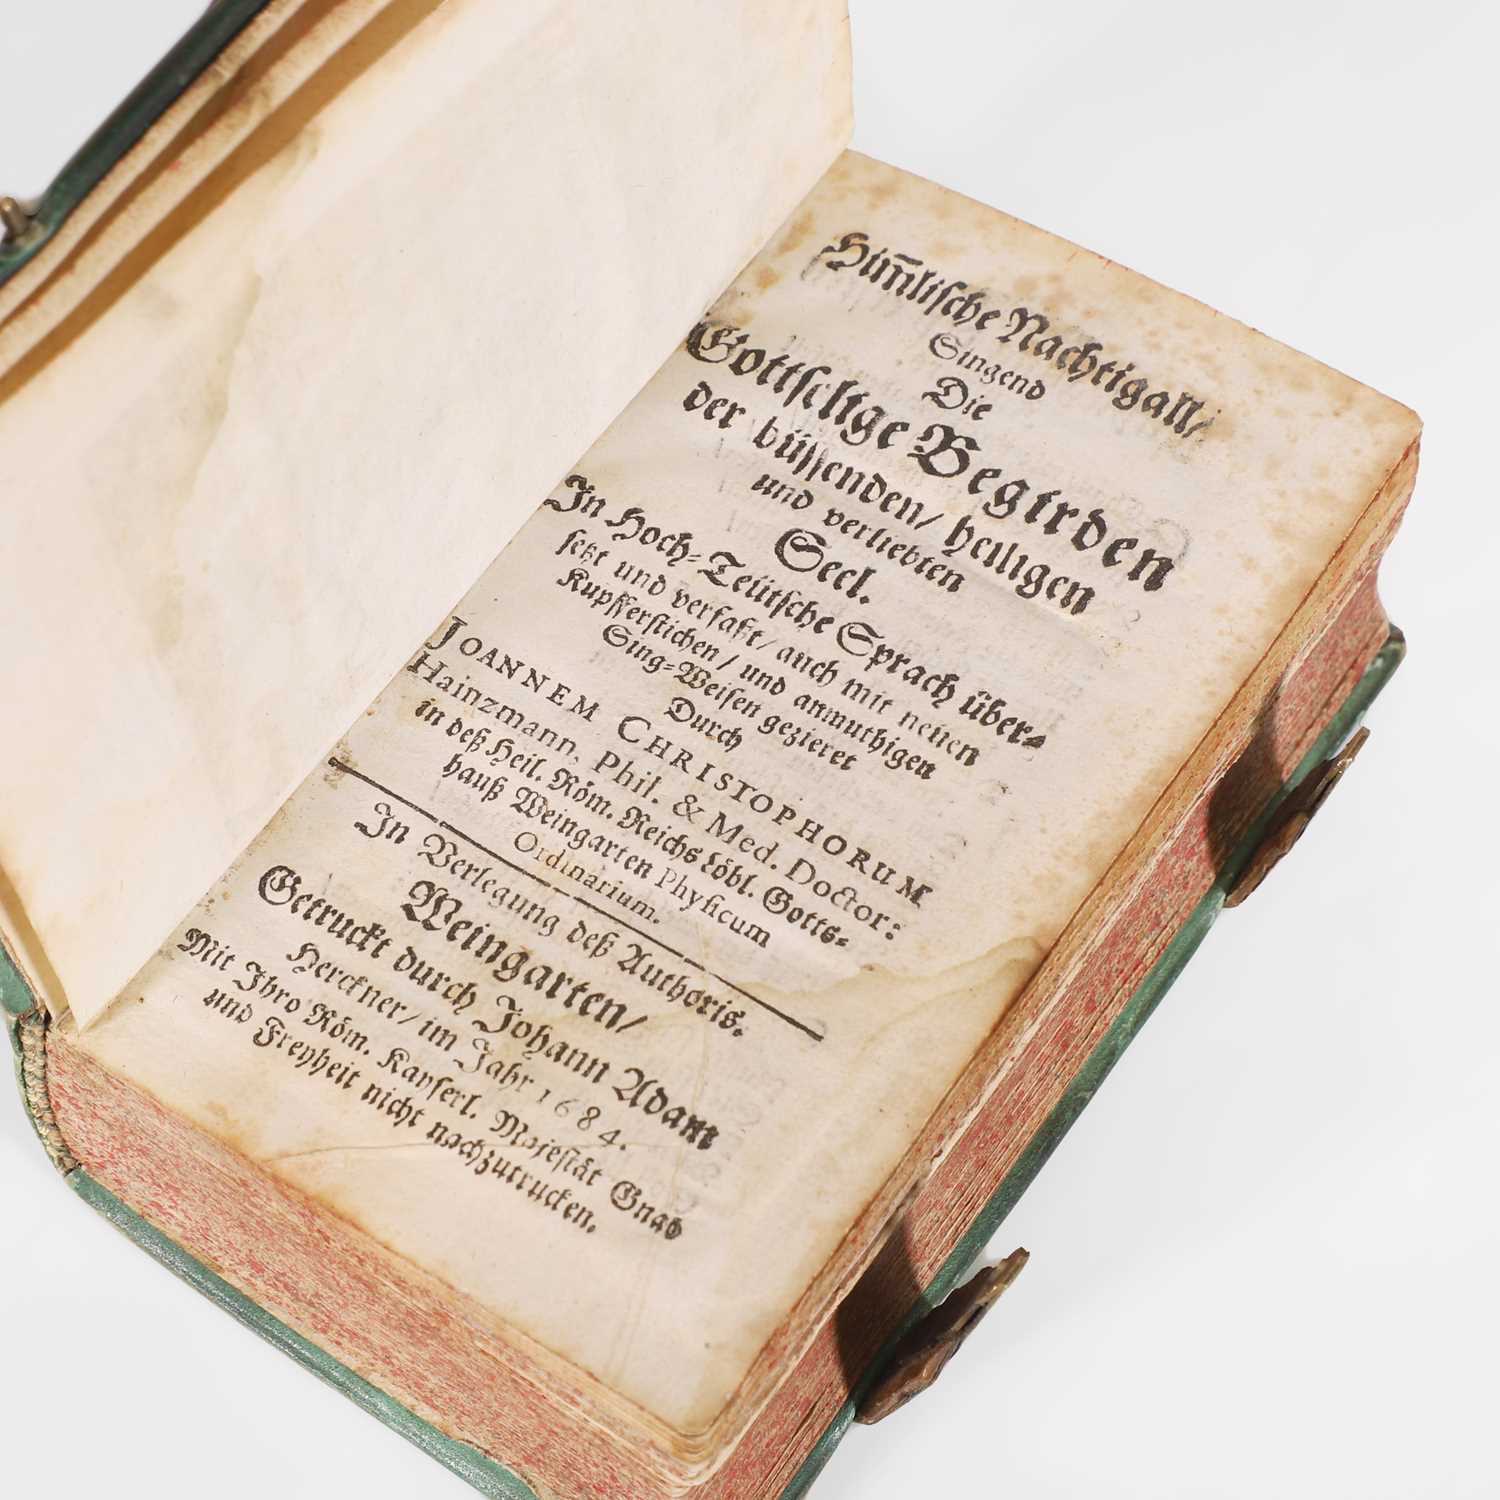 Him̄lische Nachtigall/
Singend
Die
Gottselige Begirden
der büssenden/ heiligen
und verliebten
Seel.
In Hoch-Teütsche Sprach über-
setzt und verfaßt/ auch mit neuen
Kupfferstichen/ und anmuthigen
Sing-Weisen gezieret
Durch
JOANNEM CHRISTOPHORUM
Hainzmann, Phil. & Med. Doctor:
in deß Heil. Röm. Reichs Löbl. Gotts-
hauß Weingarten Physicum
Ordinarium.
In Verlegung deß Authoris.
Weingarten/
Getruckt durch Johann Adam
Herckner/ im Jahr 1684.
Mit Ihro Röm. Kayserl. Majestät Gnad
und Freyheit nicht nachzutrucken.